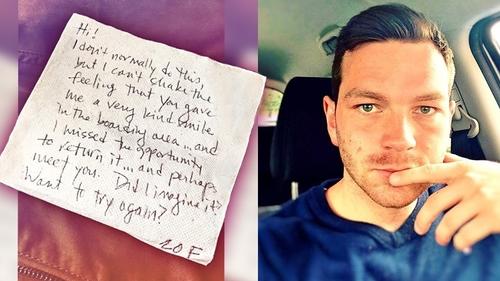 Hi!
I don't normally do this,
but I can't shake the
feeling that you gave
me a very kind smile
in the boarding area...and
I missed the opportunity
to return it...and perhaps
meet you. Did I imagine it?
Want to try again?
20F